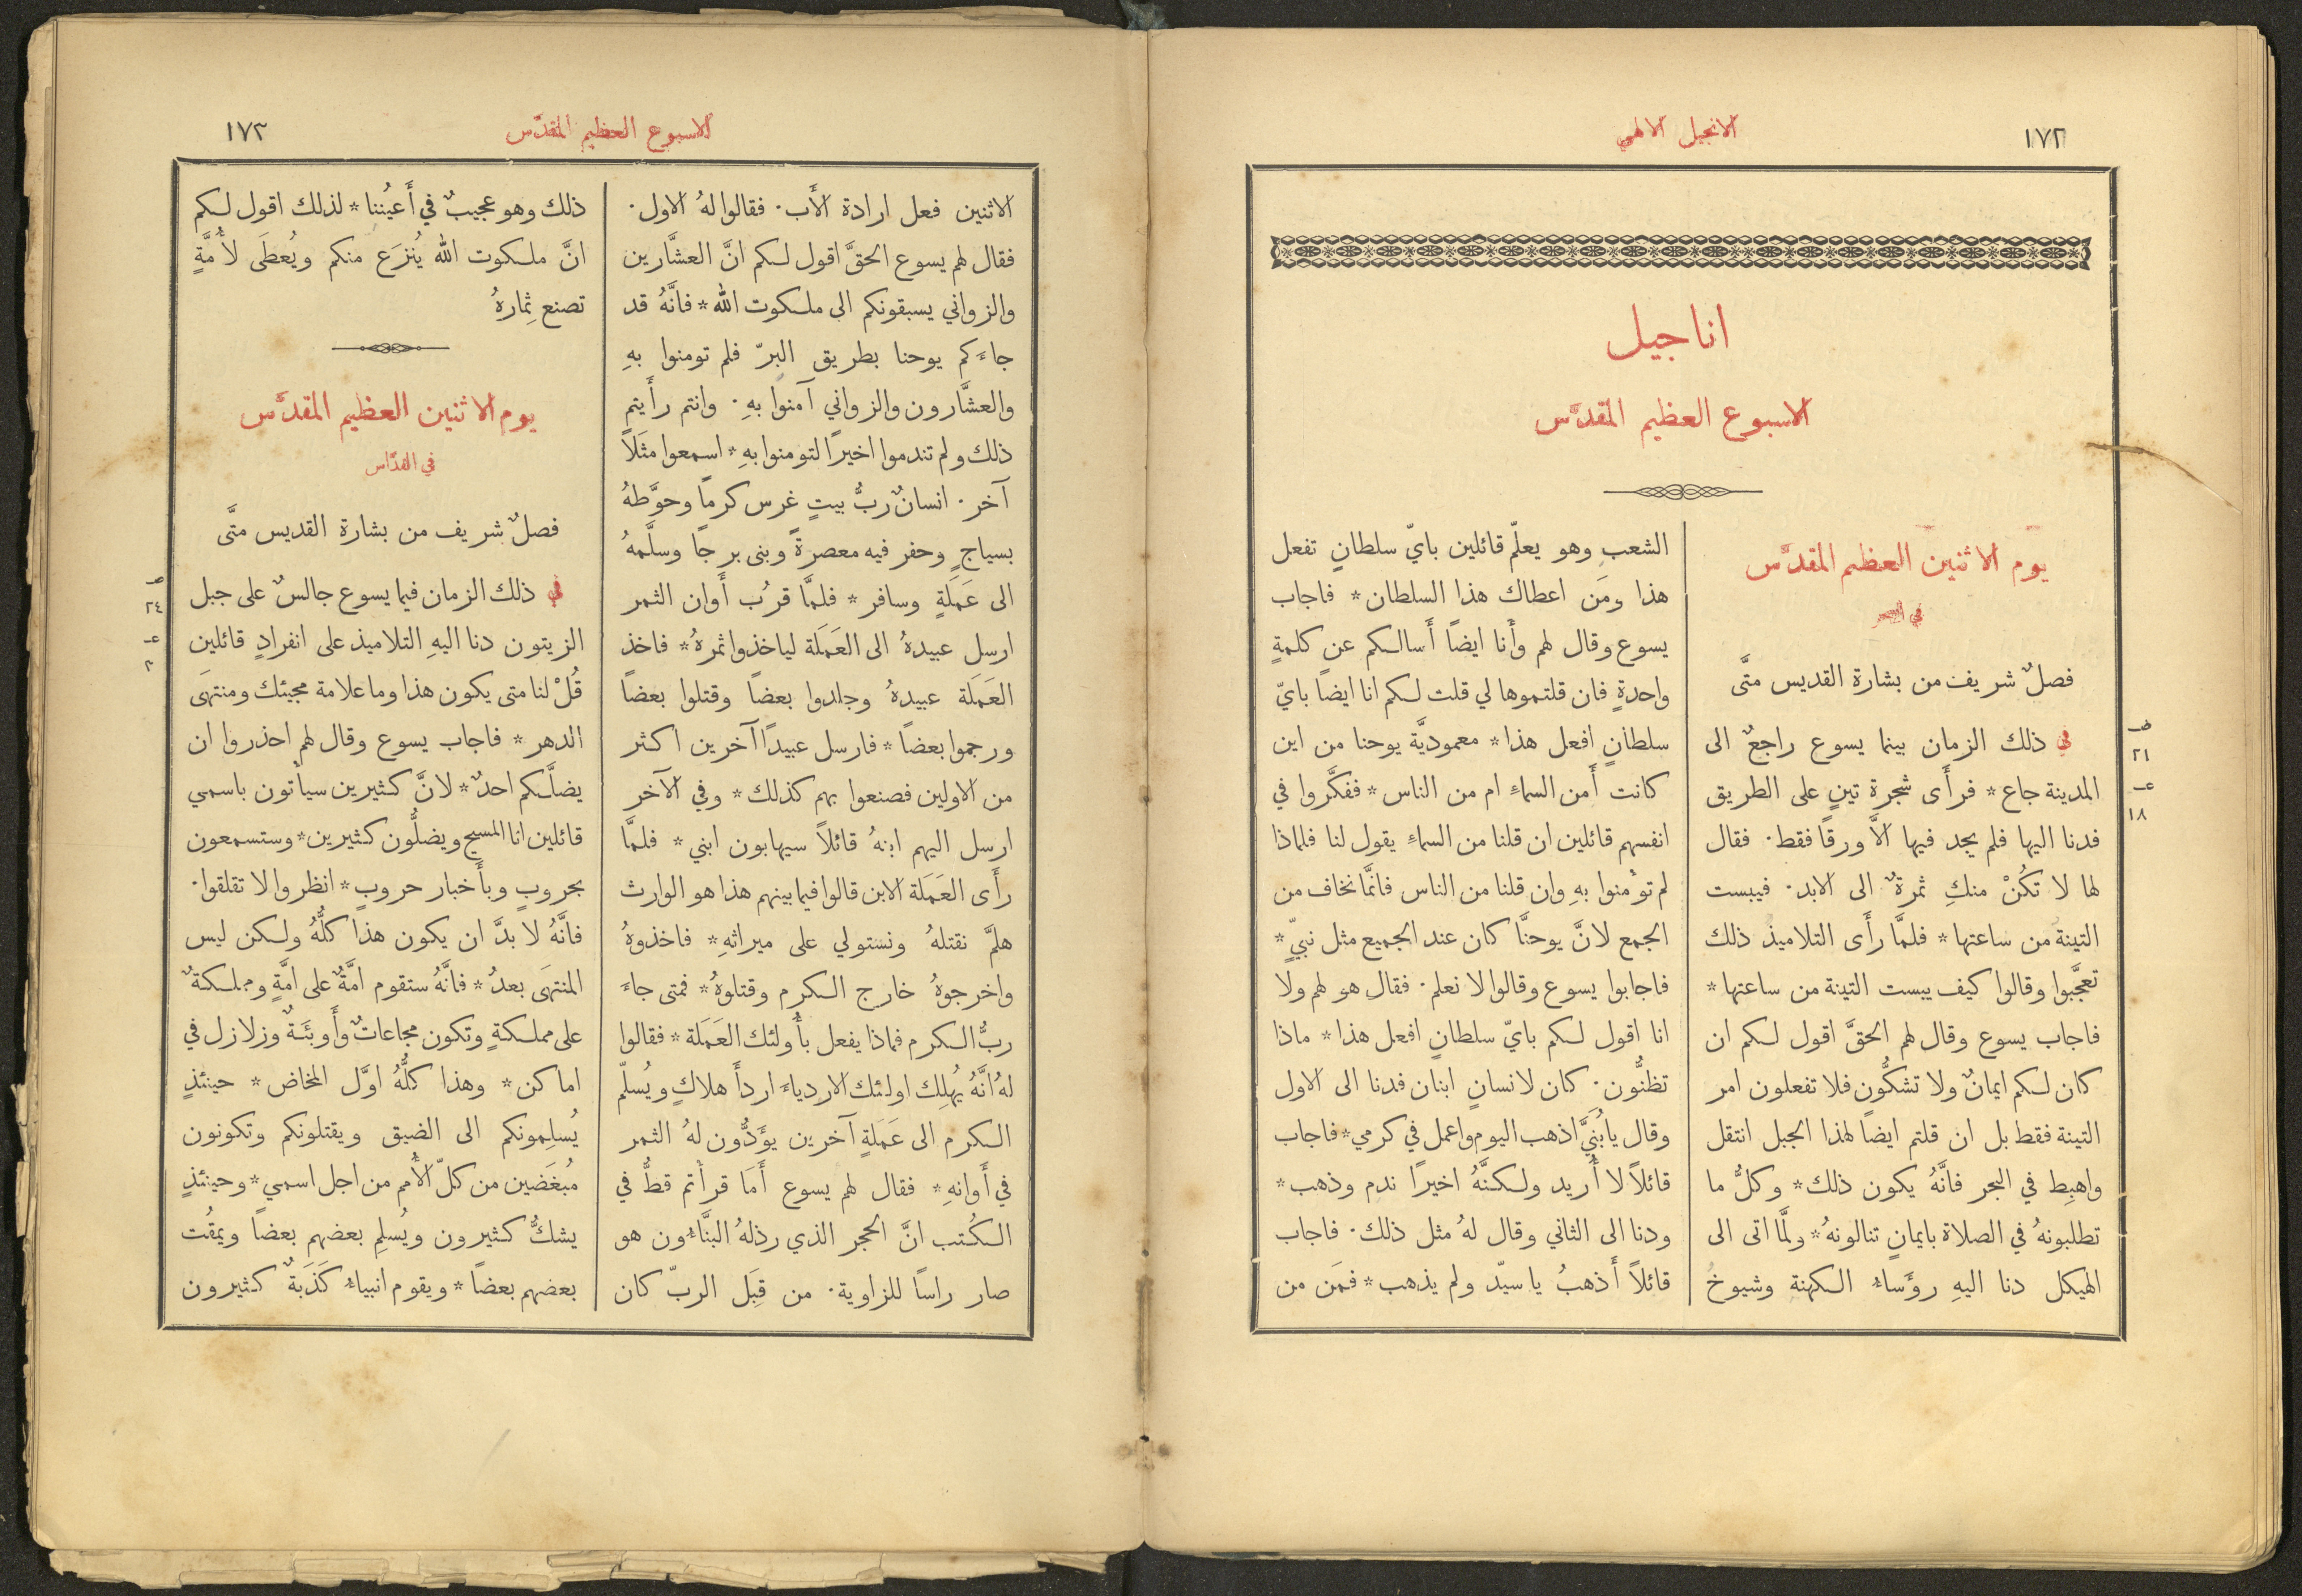 ١٧٢
الانجيل الالهي
اناجيل
الاسبوع العظيم المقدَّس
يوم الاثنين العظيم المقدَّس
في السحر
فصلٌ شريف من بشارة القديس متَّى
ص
٢١
ع
١٨
في ذلك الزمان بينما يسوع راجعٌ الى
المدينة جاع * فرأَى شجرة تينٍ على الطريق
فدنا اليها فلم يجد فيها الاَّ ورقًا فقط. فقال
لها لا تكُنْ منكِ ثمرةٌ الى الابد. فيبست
التينة من ساعتها * فلمَّا رأَى التلاميذ ذلك
تعجَّبوا وقالوا كيف يبست التينة من ساعتها *
فاجاب يسوع وقال لهم الحقَّ اقول لكم ان
كان لكم ايمانٌ ولا تشكُّون فلا تفعلون امر
التينة فقط بل ان قلتم ايضًا لهذا الجبل انتقل
واهبِط في البحر فانَّهُ يكون ذلك * وكلُّ ما
تطلبونهُ في الصلاة بايمانٍ تنالونهُ * ولمَّا اتى الى
الهيكل دنا اليهِ رؤَساءُ الكهنة وشيوخ
الشعبِ وهو يعلّم قائلين بايّ سلطانٍ تفعل
هذا ومَن اعطاك هذا السلطان * فاجاب
يسوع وقال لهم وأَنا ايضًا أَسالكم عن كلمةٍ
واحدةٍ فان قلتموها لي قلت لكم انا ايضًا بايّ
سلطانٍ افعل هذا * معموديَّة يوحنا من اين
كانت أَمن السماءِ ام من الناس * ففكَّروا في
انفسهم قائلين ان قلنا من السماءِ يقول لنا فلماذا
لم تؤمنوا بهِ وان قلنا من الناس فانَّما نخاف من
الجمع لانَّ يوحنَّا كان عند الجميع مثل نبيٍّ *
فاجابوا يسوع وقالوا لا نعلم. فقال هو لهم ولا
انا اقول لكم بايّ سلطانٍ افعل هذا * ماذا
تظنُّون. كان لانسانٍ ابنان فدنا الى الاول
وقال يا بُنَيَّ اذهب اليوم واعمل في كرمي * فاجاب
قائلاً لا أُريد ولكنَّهُ اخيرًا ندم وذهب *
ودنا الى الثاني وقال لهُ مثل ذلك. فاجاب
قائلاً أَذهبُ يا سيّد ولم يذهب * فمَن من
الاسبوع العظيم المقدَّس
١٧٣
الاثنين فعل ارادة الأَب. فقالوا لهُ الاول.
فقال لهم يسوع الحقَّ اقول لكم انَّ العشَّارين
والزواني يسبقونكم الى ملكوت الله * فانَّهُ قد
جاءَكم يوحنا بطريق البرّ فلم تومنوا بهِ
والعشَّارون والزواني آمنوا بهِ. وانتم رأَيتم
ذلك ولم تندموا اخيرًا لتومنوا بهِ * اسمعوا مثَلاً
آخر. انسانٌ ربُّ بيتٍ غرس كرمًا وحوَّطهُ
بسياجٍ وحفر فيه معصرةً وبنى برجًا وسلَّمهُ
الى عَمَلةٍ وسافر * فلمَّا قرُب أَوان الثمر
ارسل عبيدهُ الى العَمَلة لياخذوا ثمرهُ * فاخذ
العَمَلة عبيدهُ وجلدوا بعضًا وقتلوا بعضًا
ورجموا بعضًا * فارسل عبيدًا آخرين اكثر
من الاولين فصنعوا بهم كذلك * وفي الآخر
ارسل اليهم ابنهُ قائلاً سيهابون ابني * فلمَّا
رأَى العَمَلة الابن قالوا فيما بينهم هذا هو الوارث
هلمَّ نقتلهُ ونستولي على ميراثهِ * فاخذوهُ
واخرجوهُ خارج الكرم وقتلوهُ * فمتى جاءَ
ربُّ الكرم فماذا يفعل بأُولئك العَمَلة * فقالوا
لهُ انَّهُ يُهلِك اولئك الارديَاءَ اردأَ هلاكٍ ويُسلّم
الكرم الى عَمَلةٍ آخرين يؤَدُّون لهُ الثمر
في أَوانهِ * فقال لهم يسوع أَمَا قرأتم قطُّ في
الكُتب انَّ الحجر الذي رذلهُ البنَّاءُون هو
صار راسًا للزاوية. من قِبَل الربّ كان
ذلك وهو عجيبٌ في أَعيُننا * لذلك اقول لكم
انَّ ملكوت الله يُنزَع منكم ويُعطَى لأُمَّةٍ
تصنع ثِمارهُ
يوم الاثنين العظيم المقدَّس
في القدَّاس
فصلٌ شريف من بشارة القديس متَّى
ص
٢٤
ع
٣
في ذلك الزمان فيما يسوع جالسٌ على جبل
الزيتون دنا اليهِ التلاميذ على انفرادٍ قائلين
قُلْ لنا متى يكون هذا وما علامة مجيئك ومنتهَى
الدهر * فاجاب يسوع وقال لهم احذروا ان
يضلَّكم احدٌ * لانَّ كثيرين سيأتون باسمي
قائلين انا المسيح ويضلُّون كثيرين * وستسمعون
بحروبٍ وبأَخبار حروبٍ * انظروا لا تقلقوا.
فانَّهُ لا بدَّ ان يكون هذا كلُّهُ ولكن ليس
المنتهَى بعدُ * فانَّهُ ستقوم امَّةٌ على امَّةٍ ومملكةٌ
على مملكةٍ وتكون مجاعاتٌ وأَوبئَةٌ وزلازل في
اماكن * وهذا كلُّهُ اوَّل المخاض * حينئذٍ
يُسلِمونكم الى الضيق ويقتلونكم وتكونون
مُبغَضين من كلّ الأُمم من اجل اسمي * وحينئذٍ
يشكُّ كثيرون ويُسلِم بعضهم بعضًا ويمقُت
بعضهم بعضًا * ويقوم انبياءُ كَذَبةٌ كثيرون